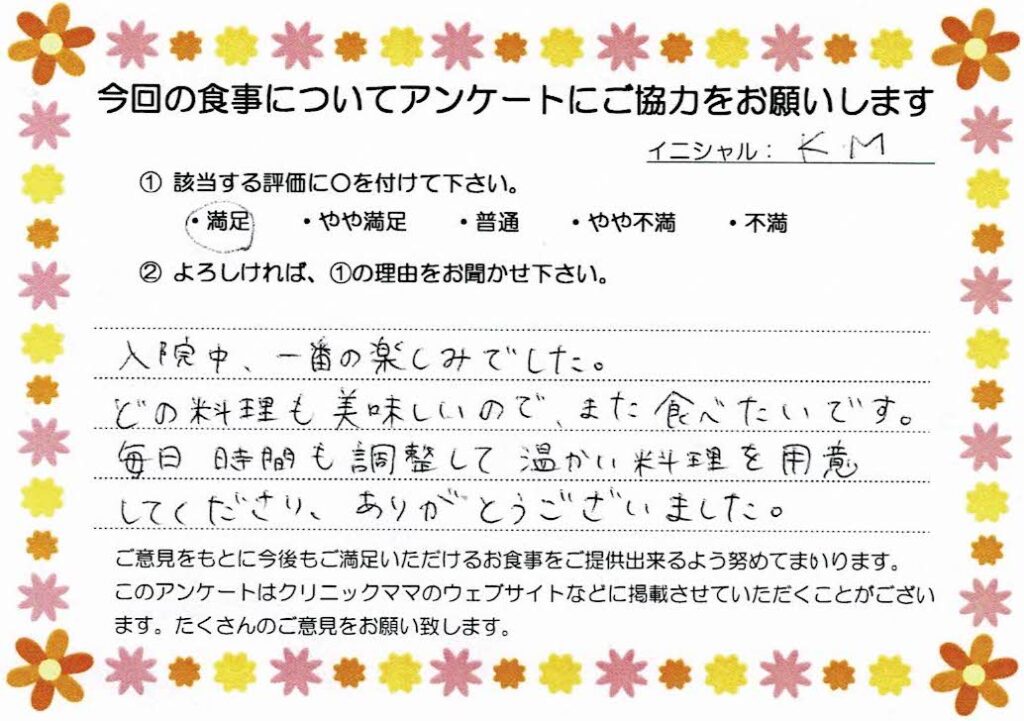 今回の食事についてアンケートにご協力をお願いします
イニシャル： K M
① 該当する評価に〇を付けて下さい。
・満足 ・やや満足 ・普通 ・やや不満 ・不満
② よろしければ、①の理由をお聞かせ下さい。
入院中、一番の楽しみでした。
どの料理も美味しいので、また食べたいです。
毎日 時間も調整して 温かい料理を用意
してくださり、ありがとうございました。
ご意見をもとに今後もご満足いただけるお食事をご提供出来るよう努めてまいります。
このアンケートはクリニックママのウェブサイトなどに掲載させていただくことがござい
ます。たくさんのご意見をお願い致します。